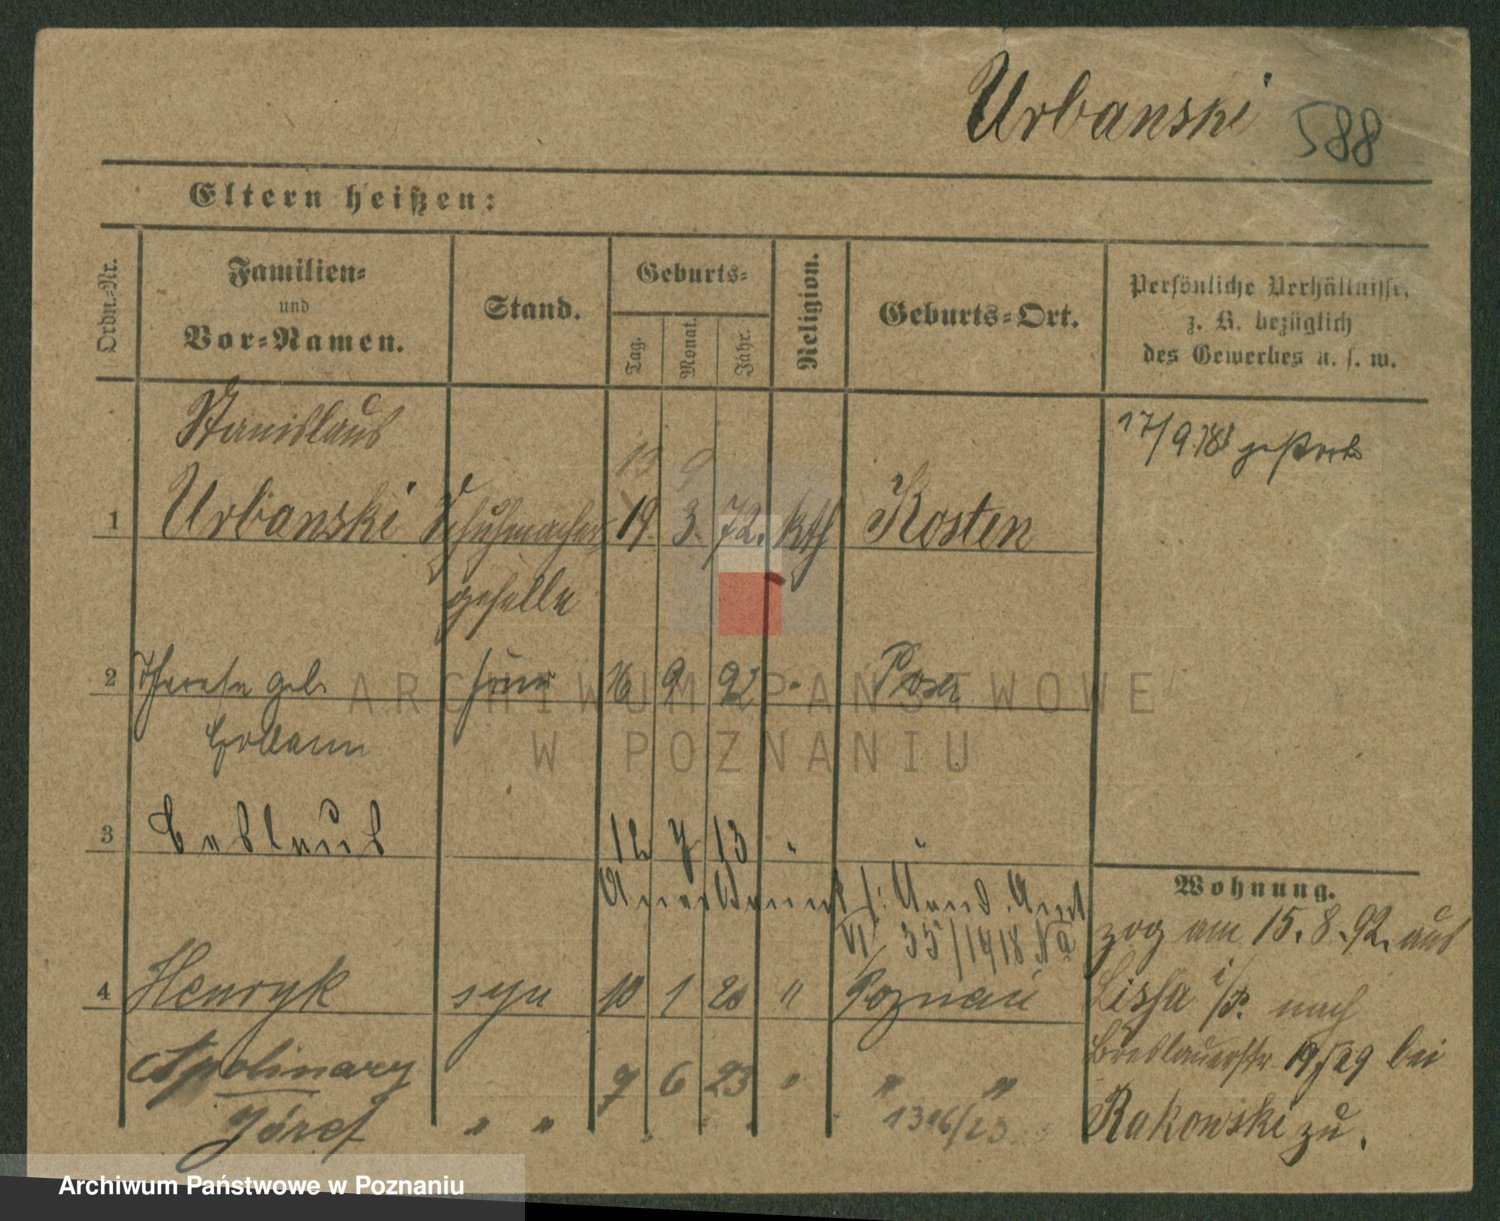 Urbanski 588
Eltern heißen:
Ordn.-Nr.
Familien-
und
Vor-Namen.
Stand.
Geburts-
Tag.
Monat.
Jahr.
Religion.
Geburts-Ort.
Persönliche Verhältnisse,
z. B. bezüglich
des Gewerbes u. s. w.
Stanislaus
13 9
17/9.18 gestorb
1 Urbanski Schuhmacher 19. 3. 72. kth Kosten
geselle
2 Therese geb. 16 9 92 " Posen
3 Ceslaus 12 7 13 " "
Anerkannt s: Stand. Amt
VI/ 35/1918 Na
4 Henryk syn 10 1 20 " Poznań
Apolinary 7 6 23 " " "
Józef " " 1316/23
Wohnung.
zog am 15. 8. 92. aus
Lissa i/P. nach
Breslauerstr. 19/29 bei
Rakowski zu.
ARCHIWUM PAŃSTWOWE
W POZNANIU
Archiwum Państwowe w Poznaniu